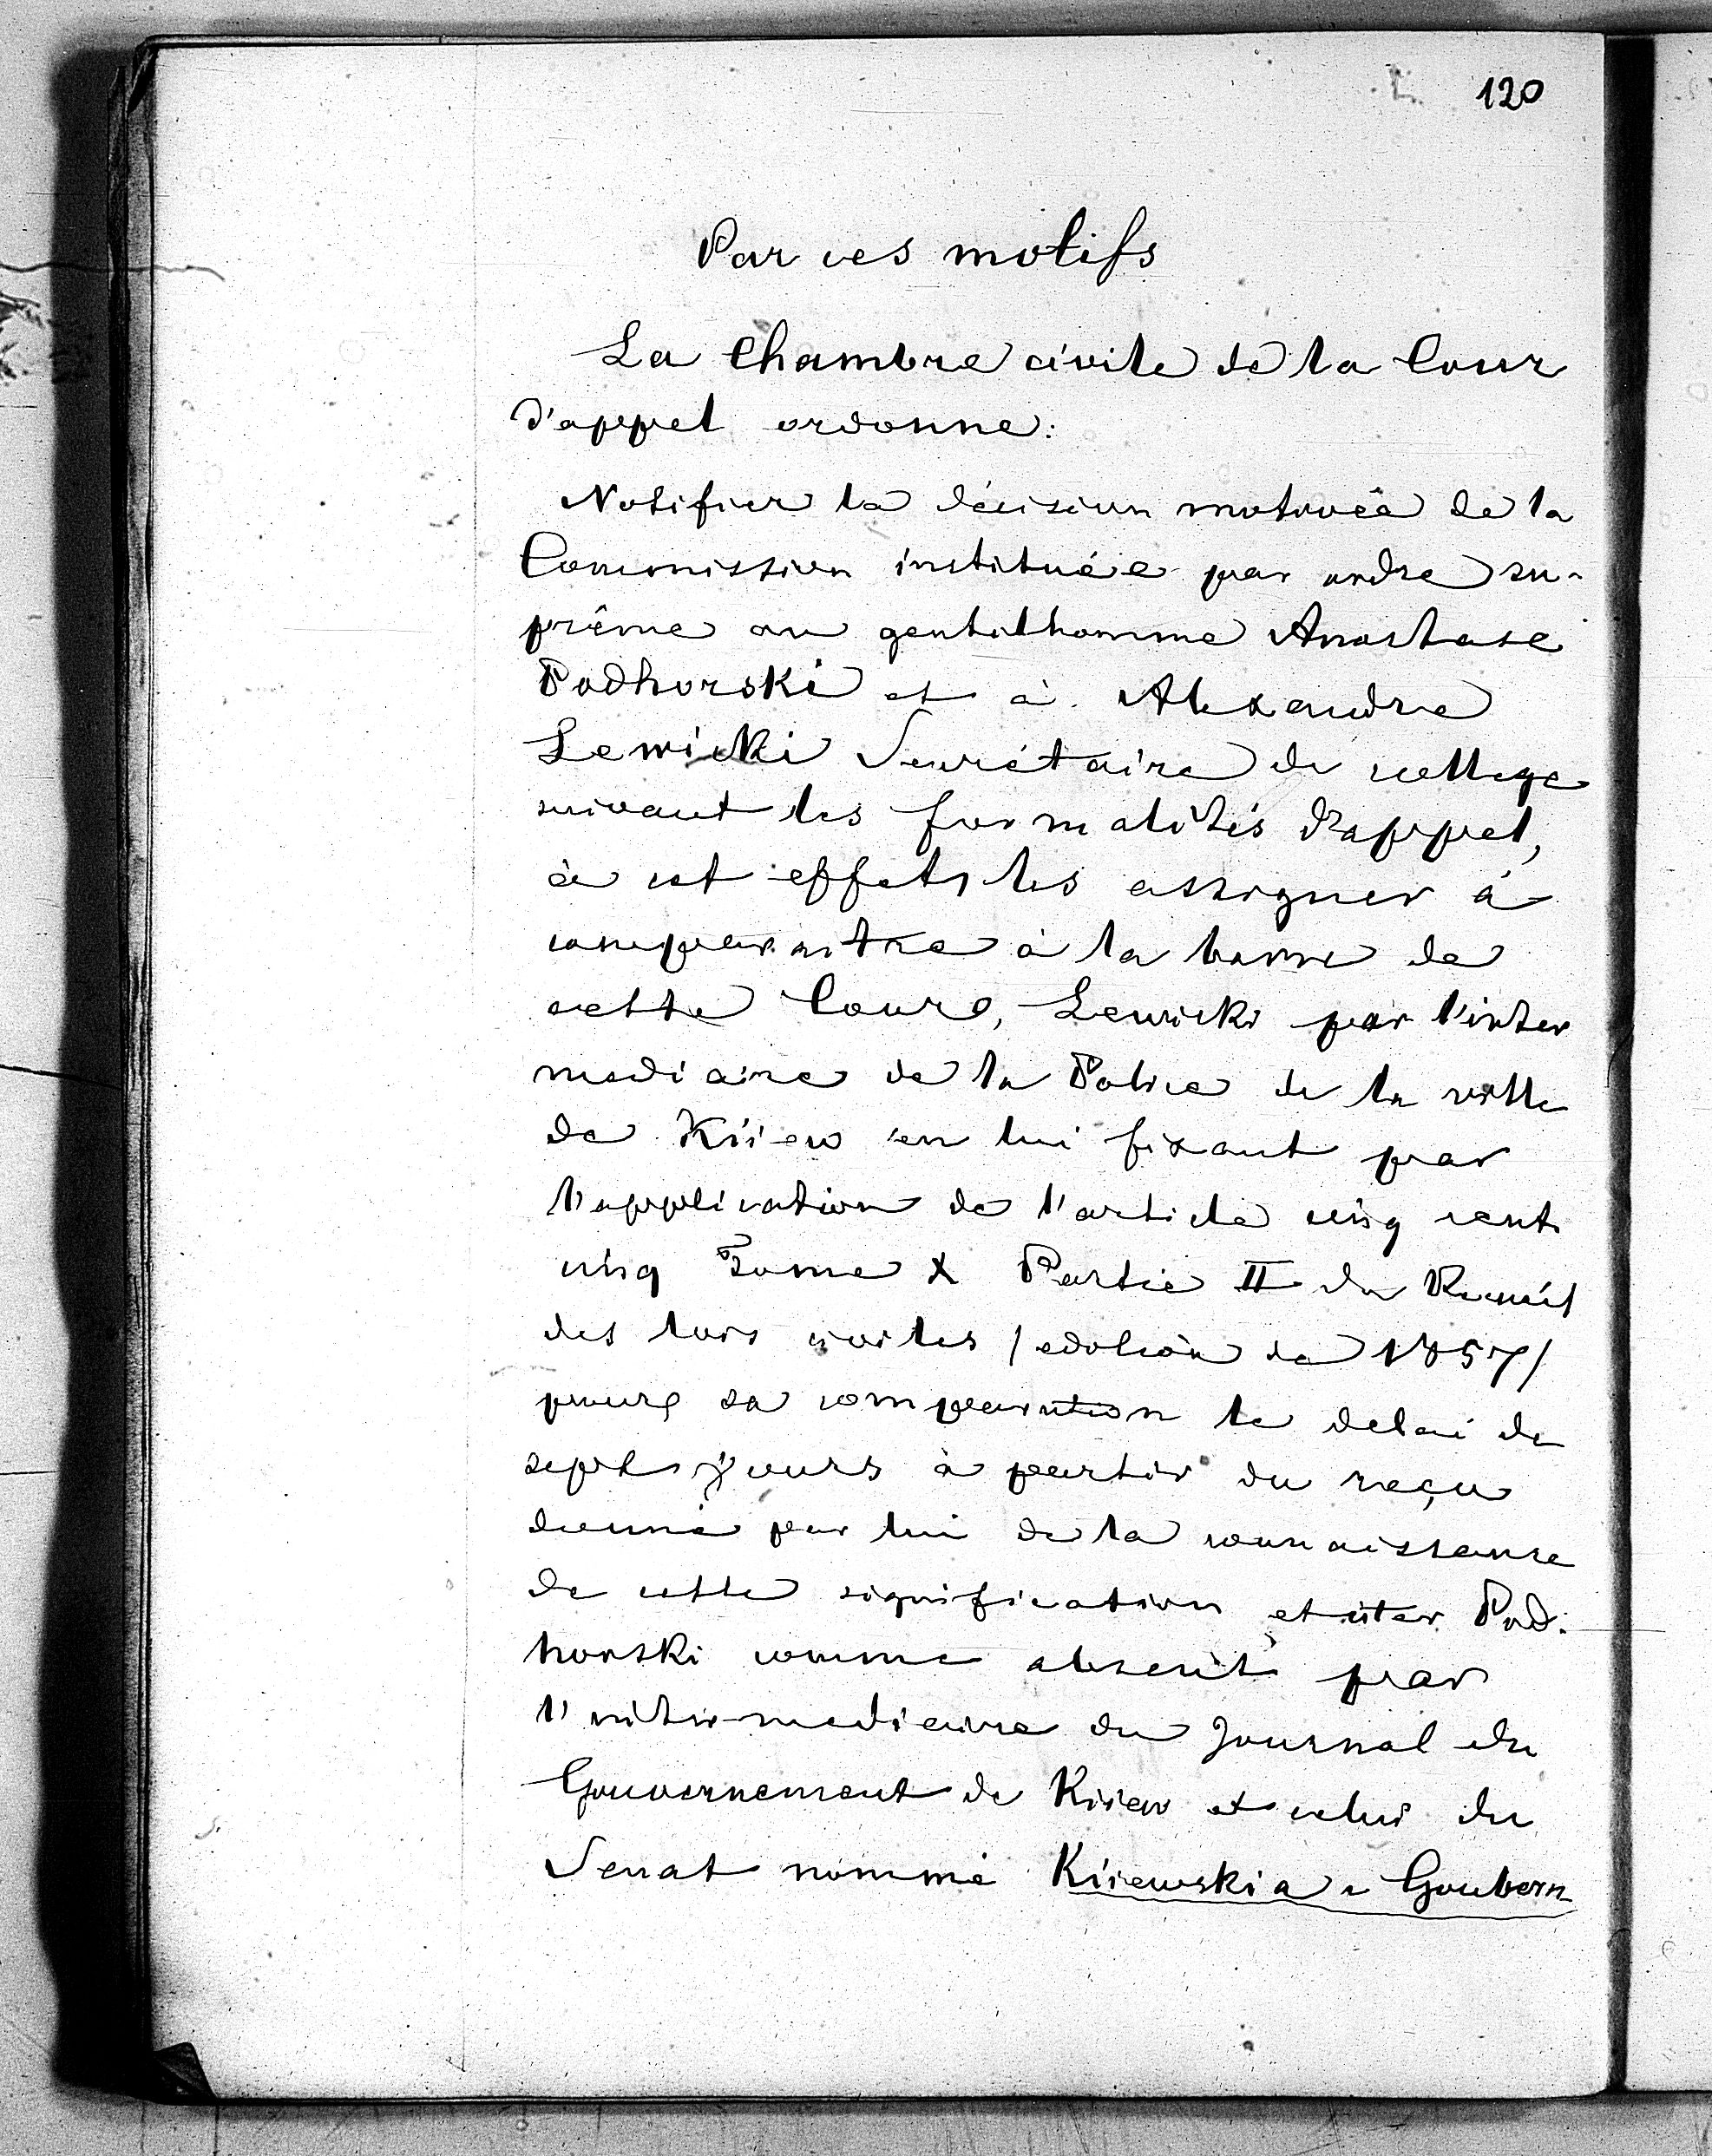 120
Par ces motifs
La Chambre civile de la Cour
d'appel ordonne:
Notifier la décision motivée de la
Commission instituée par ordre su-
prême au gentilhomme Anastase
Podhorski et à Alexandre
Lewicki Secrétaire de collège
suivant les formalités d'appel,
à cet effet les assigner à
comparaitre à la barre de
cette Cour, Lewicki par l'inter
mediaire de la Police de la ville
de Kiiew en lui fixant par
l'application de l'article cinq cent
cinq Tome X Partie II du Recueil
des lois civiles / edition de 1857/
pour sa comparution le delai de
sept jours à partir du reçu
donné par lui de la connaissance
de cette signification et citer Pod-
horski comme absent par
l'intermediaire du Journal du
Gouvernement de Kiiew et celui du
Senat nommé Kiiewskia e Goubern